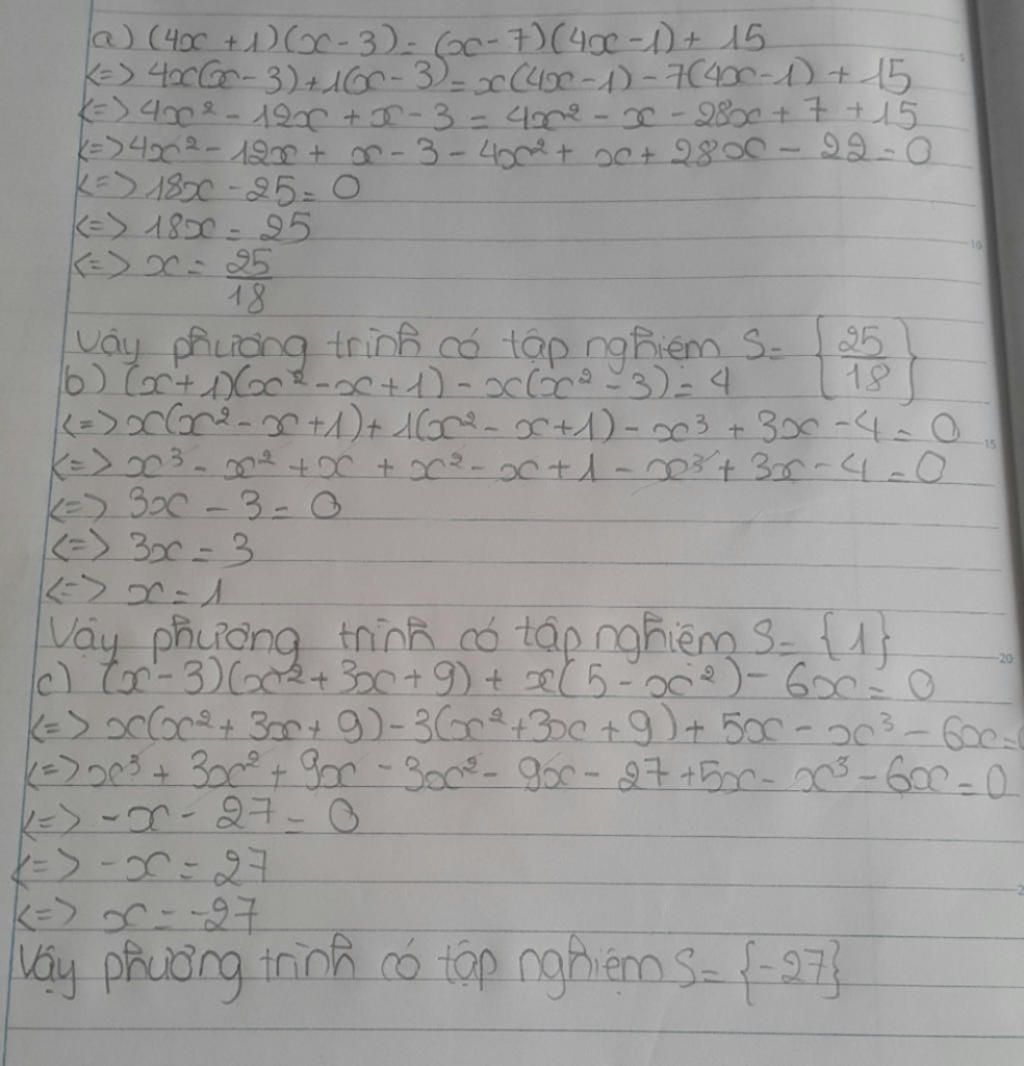 a) (4x + 1)(x - 3) = (x - 7)(4x - 1) + 15
<=> 4x(x - 3) + 1(x - 3) = x(4x - 1) - 7(4x - 1) + 15
<=> 4x² - 12x + x - 3 = 4x² - x - 28x + 7 + 15
<=> 4x² - 12x + x - 3 - 4x² + x + 28x - 22 = 0
<=> 18x - 25 = 0
<=> 18x = 25
<=> x = 25/18
Vậy phương trình có tập nghiệm S = {25/18}
b) (x + 1)(x² - x + 1) - x(x² - 3) = 4
<=> x(x² - x + 1) + 1(x² - x + 1) - x³ + 3x - 4 = 0
<=> x³ - x² + x + x² - x + 1 - x³ + 3x - 4 = 0
<=> 3x - 3 = 0
<=> 3x = 3
<=> x = 1
Vậy phương trình có tập nghiệm S = {1}
c) (x - 3)(x² + 3x + 9) + x(5 - x²) - 6x = 0
<=> x(x² + 3x + 9) - 3(x² + 3x + 9) + 5x - x³ - 6x =
<=> x³ + 3x² + 9x - 3x² - 9x - 27 + 5x - x³ - 6x = 0
<=> -x - 27 = 0
<=> -x = 27
<=> x = -27
Vậy phương trình có tập nghiệm S = {-27}